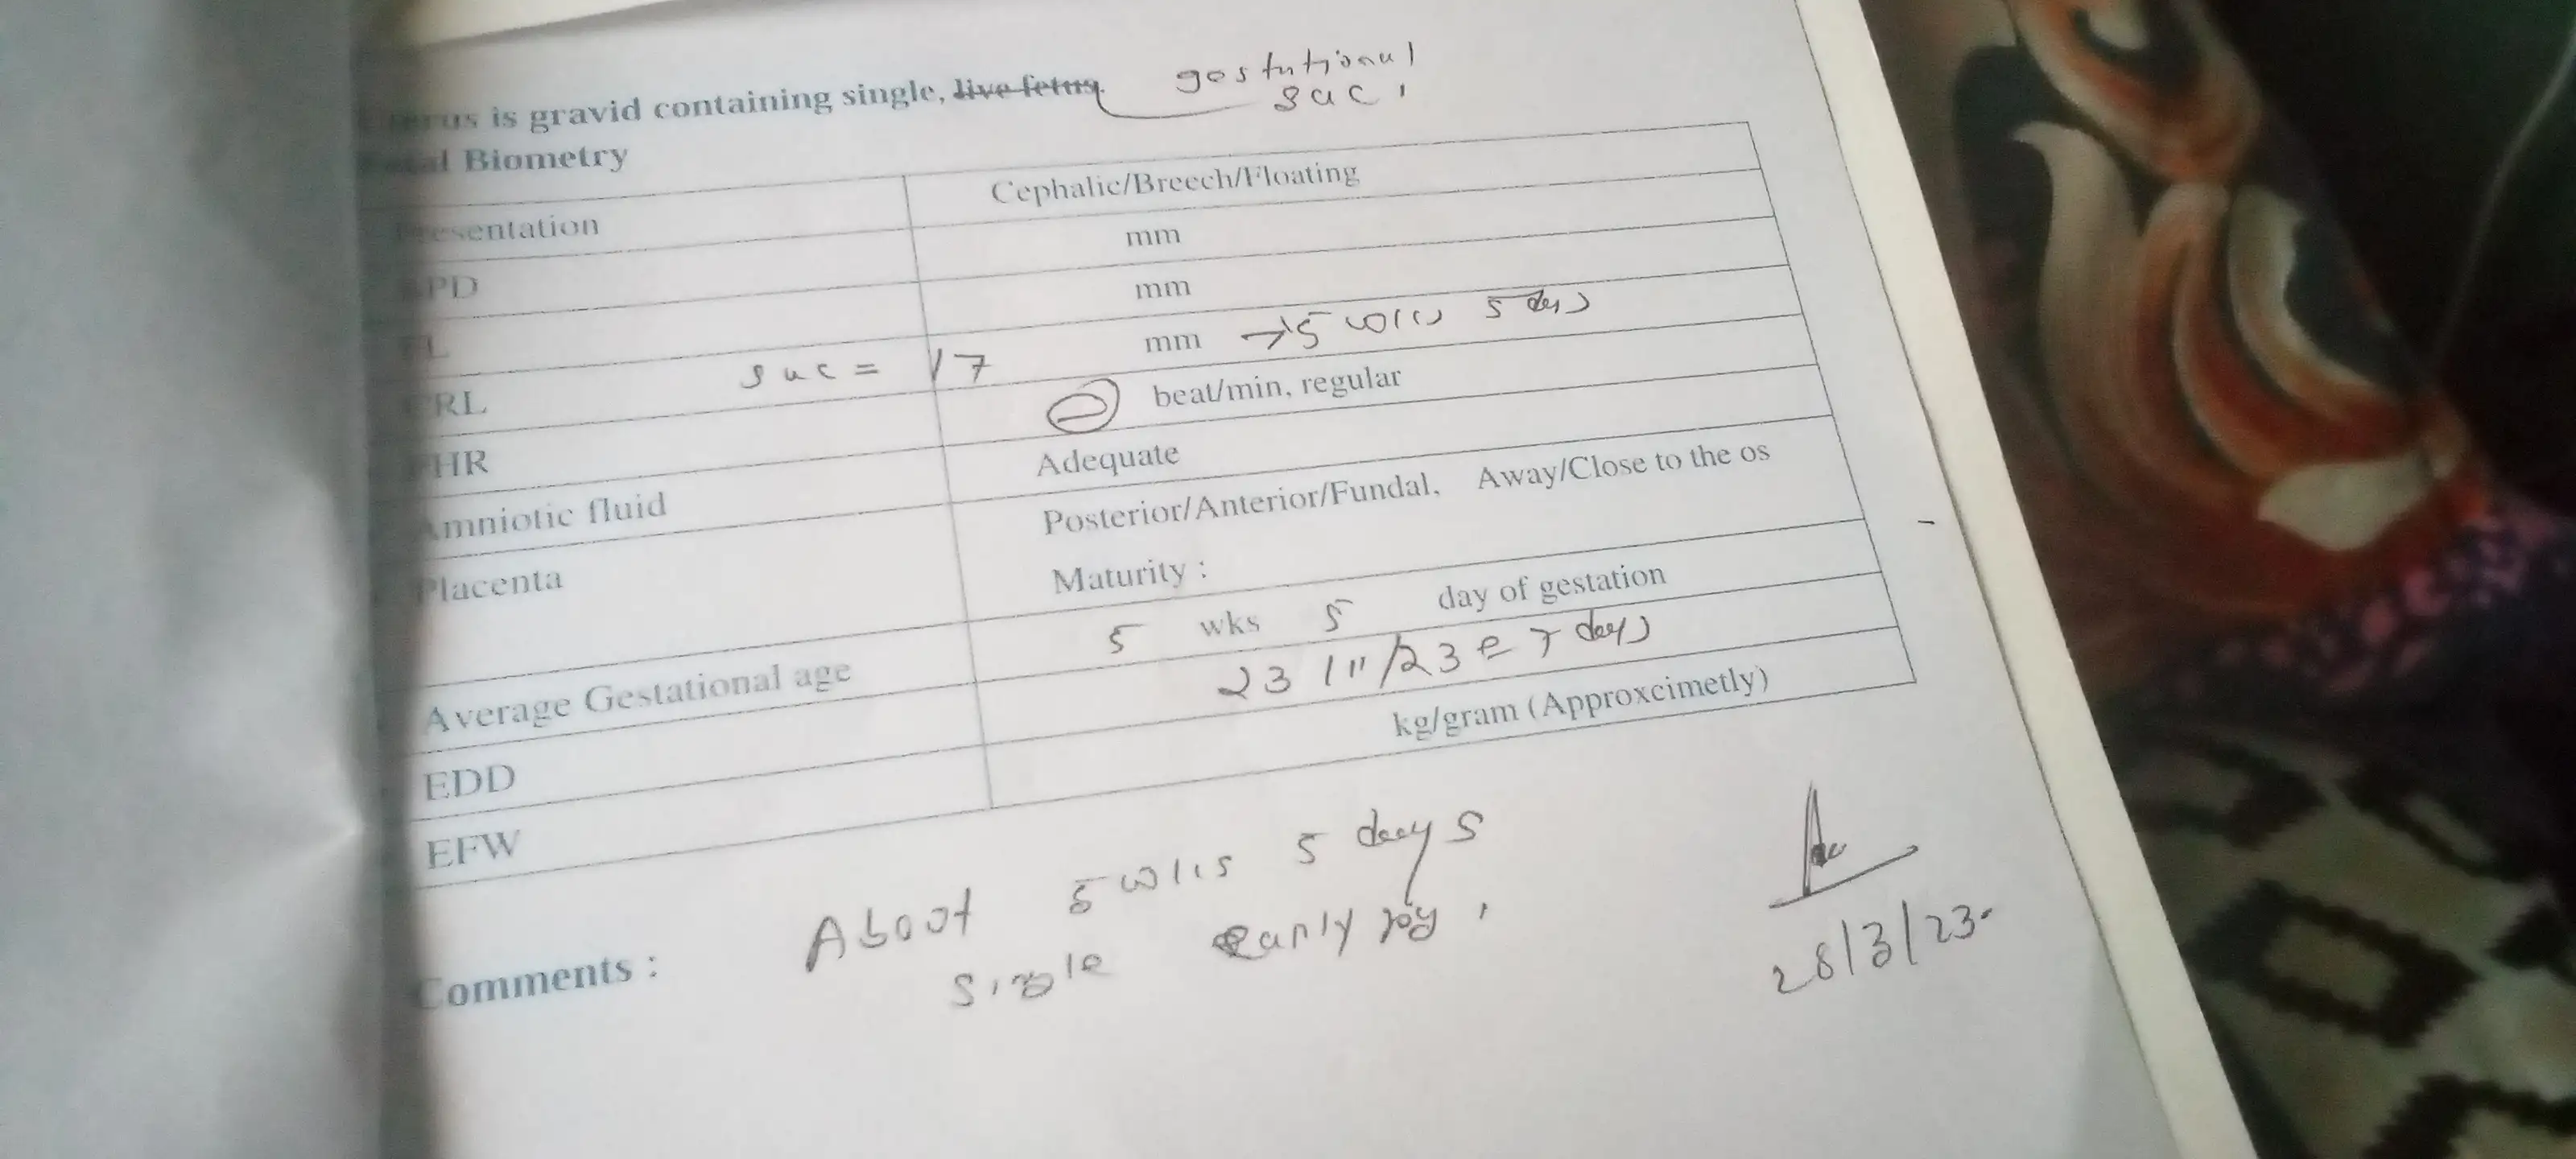 Uterus is gravid containing single, live fetus. gestutional
suc.
Fetal Biometry
Presentation Cephalic/Breech/Floating
BPD mm
FL mm
CRL suc = 17 mm → 5 wks 5 days
FHR beat/min, regular
Amniotic fluid Adequate
Placenta Posterior/Anterior/Fundal, Away/Close to the os
Maturity :
Average Gestational age 5 wks 5 day of gestation
EDD 23/11/23 ± 7 days
EFW kg/gram (Approxcimetly)
Comments : About 5 wks 5 days
single early
28/3/23.